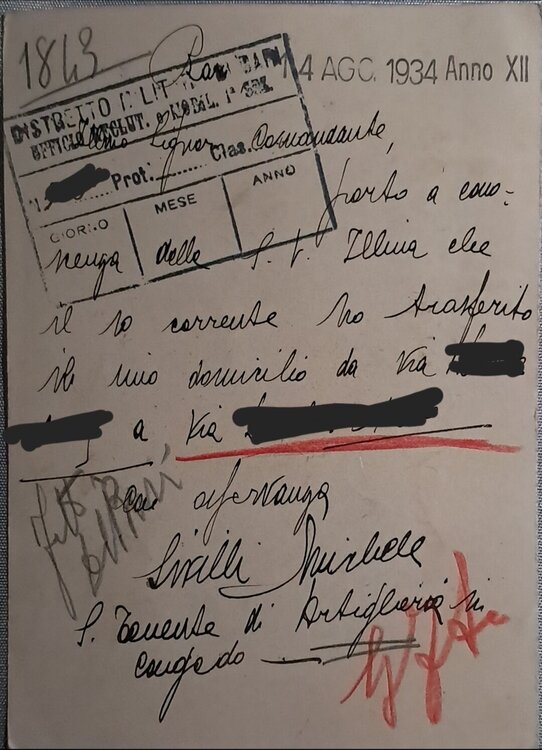 1843
14 AGO. 1934 Anno XII
DISTRETTO MILIT
UFFICIO RECLUT. e MOBIL. 1ª SEZ.
Signor Comandante,
Prot. Clas.
GIORNO MESE ANNO
porto a cono-
scenza della S. V. Ill.ma che
il 10 corrente ho trasferito
il mio domicilio da Via
a Via
Con osservanza
Sivilli Michele
S. Tenente di Artiglieria in
Congedo